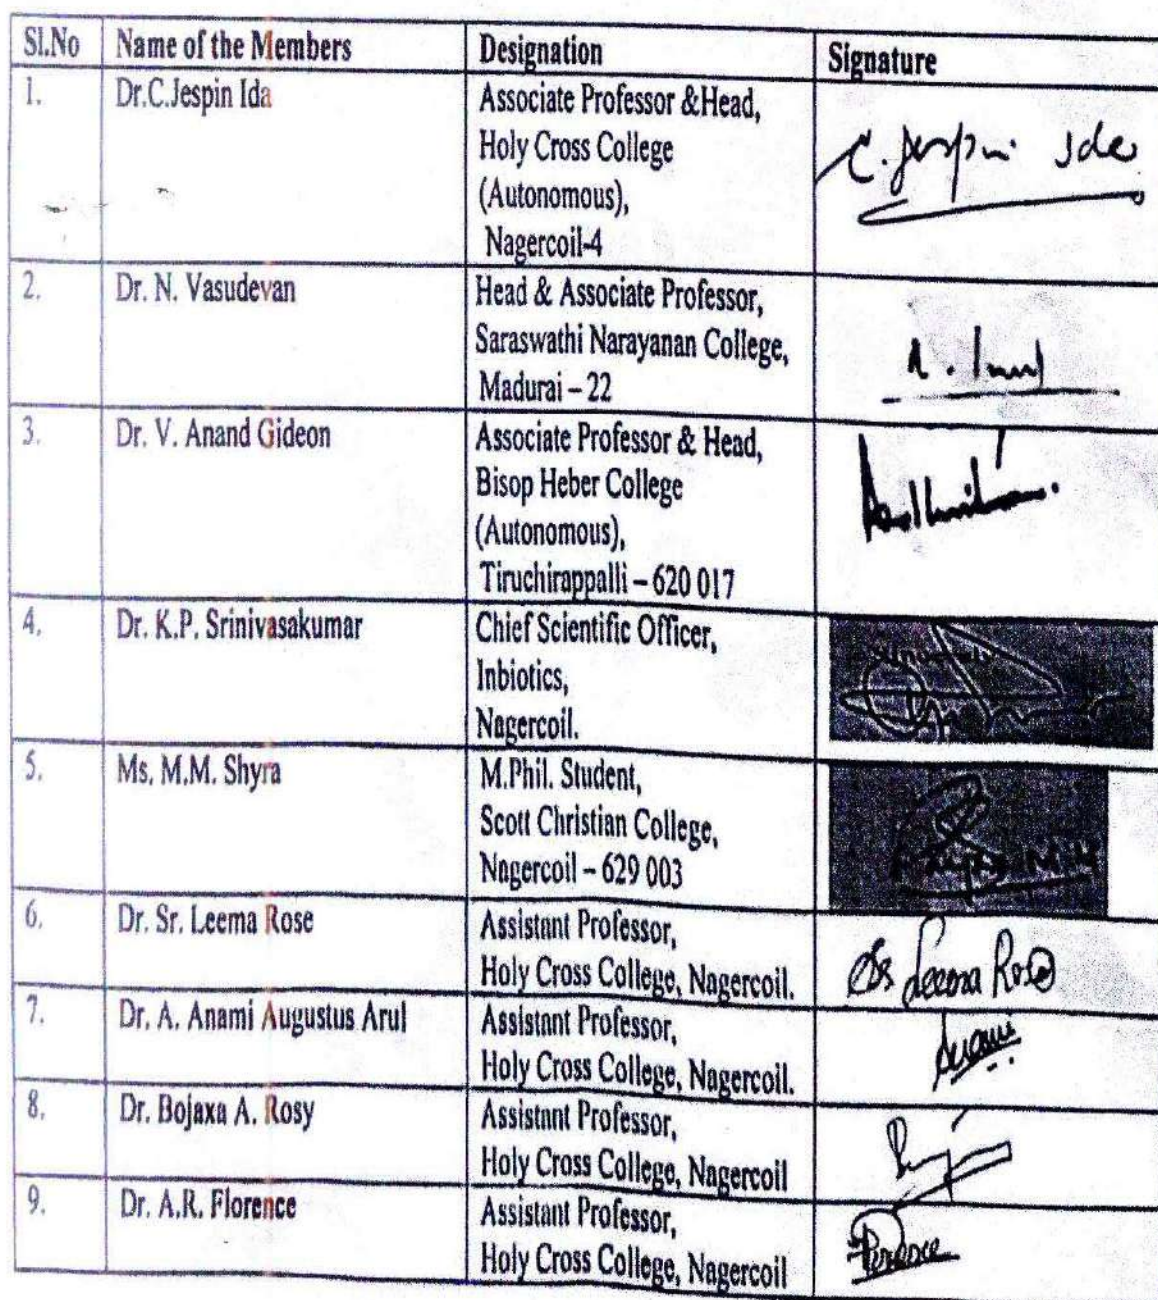 Sl.No Name of the Members Designation Signature
1. Dr.C.Jespin Ida Associate Professor &Head,
Holy Cross College
(Autonomous),
Nagercoil-4
C. Jespin Ida
2. Dr. N. Vasudevan Head & Associate Professor,
Saraswathi Narayanan College,
Madurai – 22
3. Dr. V. Anand Gideon Associate Professor & Head,
Bisop Heber College
(Autonomous),
Tiruchirappalli – 620 017
4. Dr. K.P. Srinivasakumar Chief Scientific Officer,
Inbiotics,
Nagercoil.
5. Ms. M.M. Shyra M.Phil. Student,
Scott Christian College,
Nagercoil – 629 003
6. Dr. Sr. Leema Rose Assistant Professor,
Holy Cross College, Nagercoil.
Sr Leema Rose
7. Dr. A. Anami Augustus Arul Assistant Professor,
Holy Cross College, Nagercoil.
Anami
8. Dr. Bojaxa A. Rosy Assistant Professor,
Holy Cross College, Nagercoil
9. Dr. A.R. Florence Assistant Professor,
Holy Cross College, Nagercoil
Florence